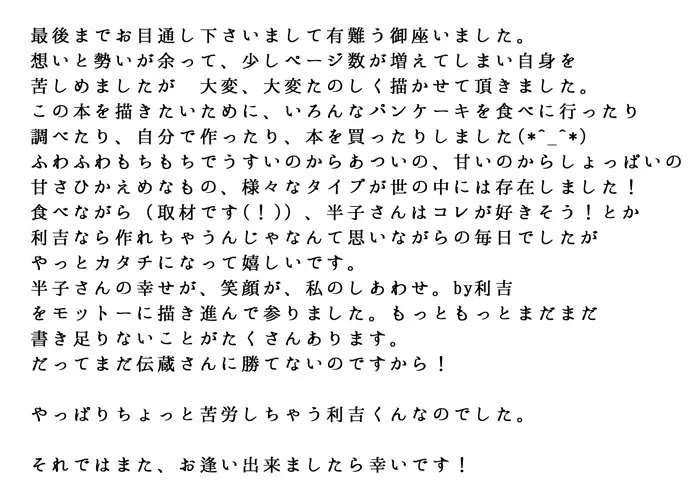 最後までお目通し下さいまして有難う御座いました。
想いと勢いが余って、少しページ数が増えてしまい自身を
苦しめましたが　大変、大変たのしく描かせて頂きました。
この本を描きたいために、いろんなパンケーキを食べに行ったり
調べたり、自分で作ったり、本を買ったりしました(*^_^*)
ふわふわもちもちでうすいのからあついの、甘いのからしょっぱいの
甘さひかえめなもの、様々なタイプが世の中には存在しました！
食べながら（取材です(！)）、半子さんはコレが好きそう！とか
利吉なら作れちゃうんじゃなんて思いながらの毎日でしたが
やっとカタチになって嬉しいです。
半子さんの幸せが、笑顔が、私のしあわせ。by利吉
をモットーに描き進んで参りました。もっともっとまだまだ
書き足りないことがたくさんあります。
だってまだ伝蔵さんに勝てないのですから！
やっぱりちょっと苦労しちゃう利吉くんなのでした。
それではまた、お逢い出来ましたら幸いです！